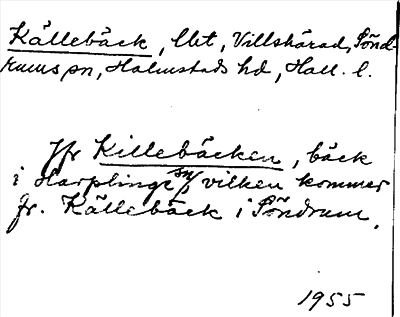 Källebäck, lbt, Villshärad, Sönd-
rums sn, Halmstads hd, Hall. l.
Jfr Killebäcken, bäck
i Harplinge sn, vilken kommer
fr. Källebäck i Söndrum.
1955